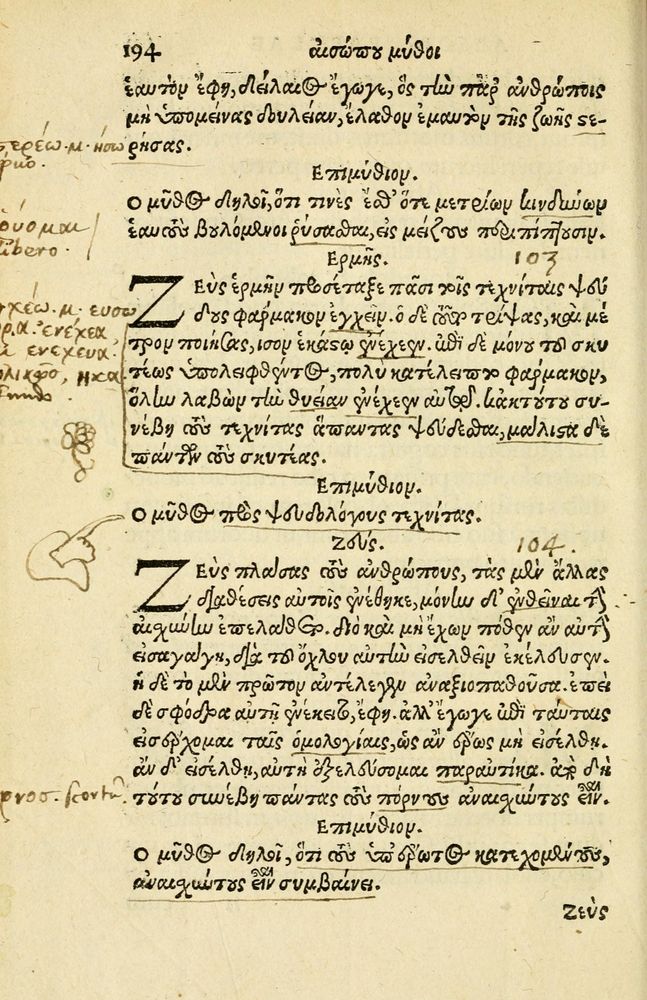 194 αισώπου μύθοι
ἑαυτὸν ἔφη, δείλαιος ἔγωγε, ὃς τὴν παρ' ἀνθρώποις
μὴ ὑπομείνας δουλείαν, ἔλαθον ἐμαυτὸν τῆς ζωῆς στε-
ρήσας.
Επιμύθιον.
Ο μῦθος δηλοῖ, ὅτι τινὲς ἔσθ' ὅτε μετρίων κινδύνων
ἑαυτοὺς βουλόμενοι ῥύσασθαι, εἰς μείζους περιπίπτουσιν.
Ερμῆς. 103
ΖΕὺς ἑρμῆν προσέταξε πᾶσι τοῖς τεχνίταις ψεύ
δους φάρμακον ἐγχεῖν. ὁ δὲ τοῦτον τρίψας, καὶ μέ
τρον ποιήσας, ἴσον ἑκάστῳ ἐνέχεεν. ἐπεὶ δὲ μόνου τοῦ σκυ
τέως ὑπολειφθέντος, πολὺ κατέλειπτο φάρμακον,
ὅλην λαβὼν τὴν θυείαν ἐνέχεεν αὐτῷ. κἀκ τούτου συ-
νέβη τοὺς τεχνίτας ἅπαντας ψεύδεσθαι, μάλιστα δὲ
πάντων τοὺς σκυτέας.
Επιμύθιον.
Ο μῦθος πρὸς ψευδολόγους τεχνίτας.
Ζεύς. 104.
ΖΕὺς πλάσας τοὺς ἀνθρώπους, τὰς μὲν ἄλλας
διαθέσεις αὐτοῖς ἐνέθηκε, μόνην δ' ἐνθεῖναι τὴν
αἰσχύνην ἐπελάθετο. διὸ καὶ μὴ ἔχων πόθεν ἂν αὐτὴν
εἰσαγάγῃ, διὰ τοῦ ὄχλου αὐτὴν εἰσελθεῖν ἐκέλευσεν.
ἡ δὲ τὸ μὲν πρῶτον ἀντέλεγεν ἀναξιοπαθοῦσα. ἐπεὶ
δὲ σφόδρα αὐτῇ ἐνέκειτο, ἔφη. ἀλλ' ἔγωγε ἐπὶ ταύταις
εἰσέρχομαι ταῖς ὁμολογίαις, ὡς ἂν ἔρως μὴ εἰσέλθῃ.
ἂν δ' εἰσέλθῃ, αὐτὴ ἐξελεύσομαι παραυτίκα. ἀπὸ δὴ
τούτου συνέβη πάντας τοὺς πόρνους ἀναισχύντους εἶναι.
Επιμύθιον.
Ο μῦθος δηλοῖ, ὅτι τοὺς ὑπ' ἔρωτος κατεχομένους,
ἀναισχύντους εἶναι συμβαίνει.
Ζεὺς